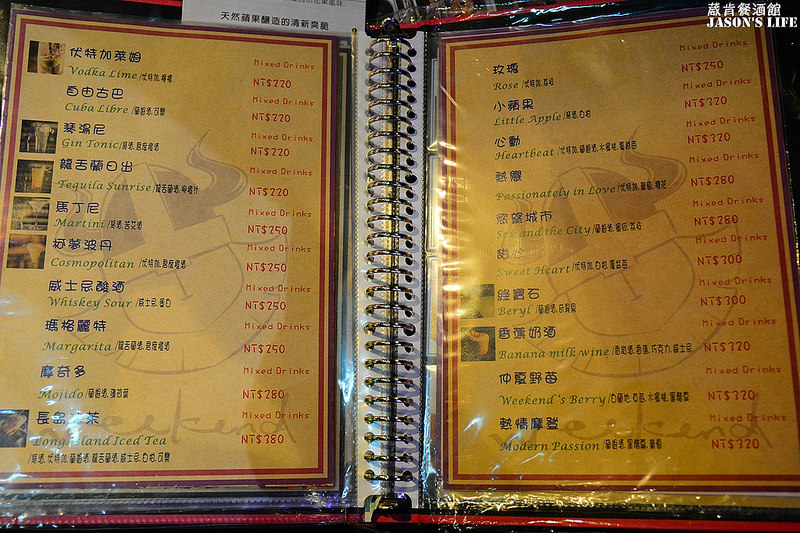 葳肯餐酒館
JASON'S LIFE
天然蘋果釀造的清新爽脆
伏特加萊姆 Mixed Drinks
Vodka Lime /伏特加,檸檬 NT$220
自由古巴 Mixed Drinks
Cuba Libre /蘭姆酒,可樂 NT$220
琴湯尼 Mixed Drinks
Gin Tonic /琴酒, NT$220
龍舌蘭日出 Mixed Drinks
Tequila Sunrise /龍舌蘭酒,柳橙汁 NT$220
馬丁尼 Mixed Drinks
Martini /琴酒,苦艾酒 NT$250
柯夢波丹 Mixed Drinks
Cosmopolitan /伏特加,君度橙酒 NT$250
威士忌酸酒 Mixed Drinks
Whiskey Sour /威士忌,蛋白 NT$250
瑪格麗特 Mixed Drinks
Margarita /龍舌蘭酒,君度橙酒 NT$250
摩奇多 Mixed Drinks
Mojido /蘭姆酒,薄荷葉 NT$280
長島冰茶 Mixed Drinks
Long Island Iced Tea NT$380
/琴酒,伏特加,蘭姆酒,龍舌蘭酒,威士忌,白柑,可樂
weekend
玫瑰 Mixed Drinks
Rose /伏特加,荔枝 NT$250
小蘋果 Mixed Drinks
Little Apple /琴酒,白柑 NT$320
心動 Mixed Drinks
Heartbeat /伏特加,蘭姆酒,水蜜桃,藍柑苔 NT$320
熱戀 Mixed Drinks
Passionately in Love /伏特加,葡萄,櫻花 NT$280
慾望城市 Mixed Drinks
Sex and the City /蘭姆酒,蜜瓜,荔枝 NT$280
甜心 Mixed Drinks
Sweet Heart /伏特加,白柑,覆盆莓 NT$300
綠寶石 Mixed Drinks
Beryl /蘭姆酒,奇異果 NT$300
香蕉奶酒 Mixed Drinks
Banana milk wine /香蕉,巧克力,威士忌 NT$320
仲夏野莓 Mixed Drinks
Weekend's Berry /白蘭地,草莓,水蜜桃,蜜釀 NT$320
熱情摩登 Mixed Drinks
Modern Passion /蘭姆酒,蜜釀 NT$320
weekend